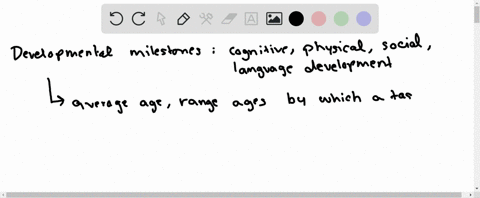 Developmental milestones : cognitive, physical, social,
language development
average age, range ages by which a tas